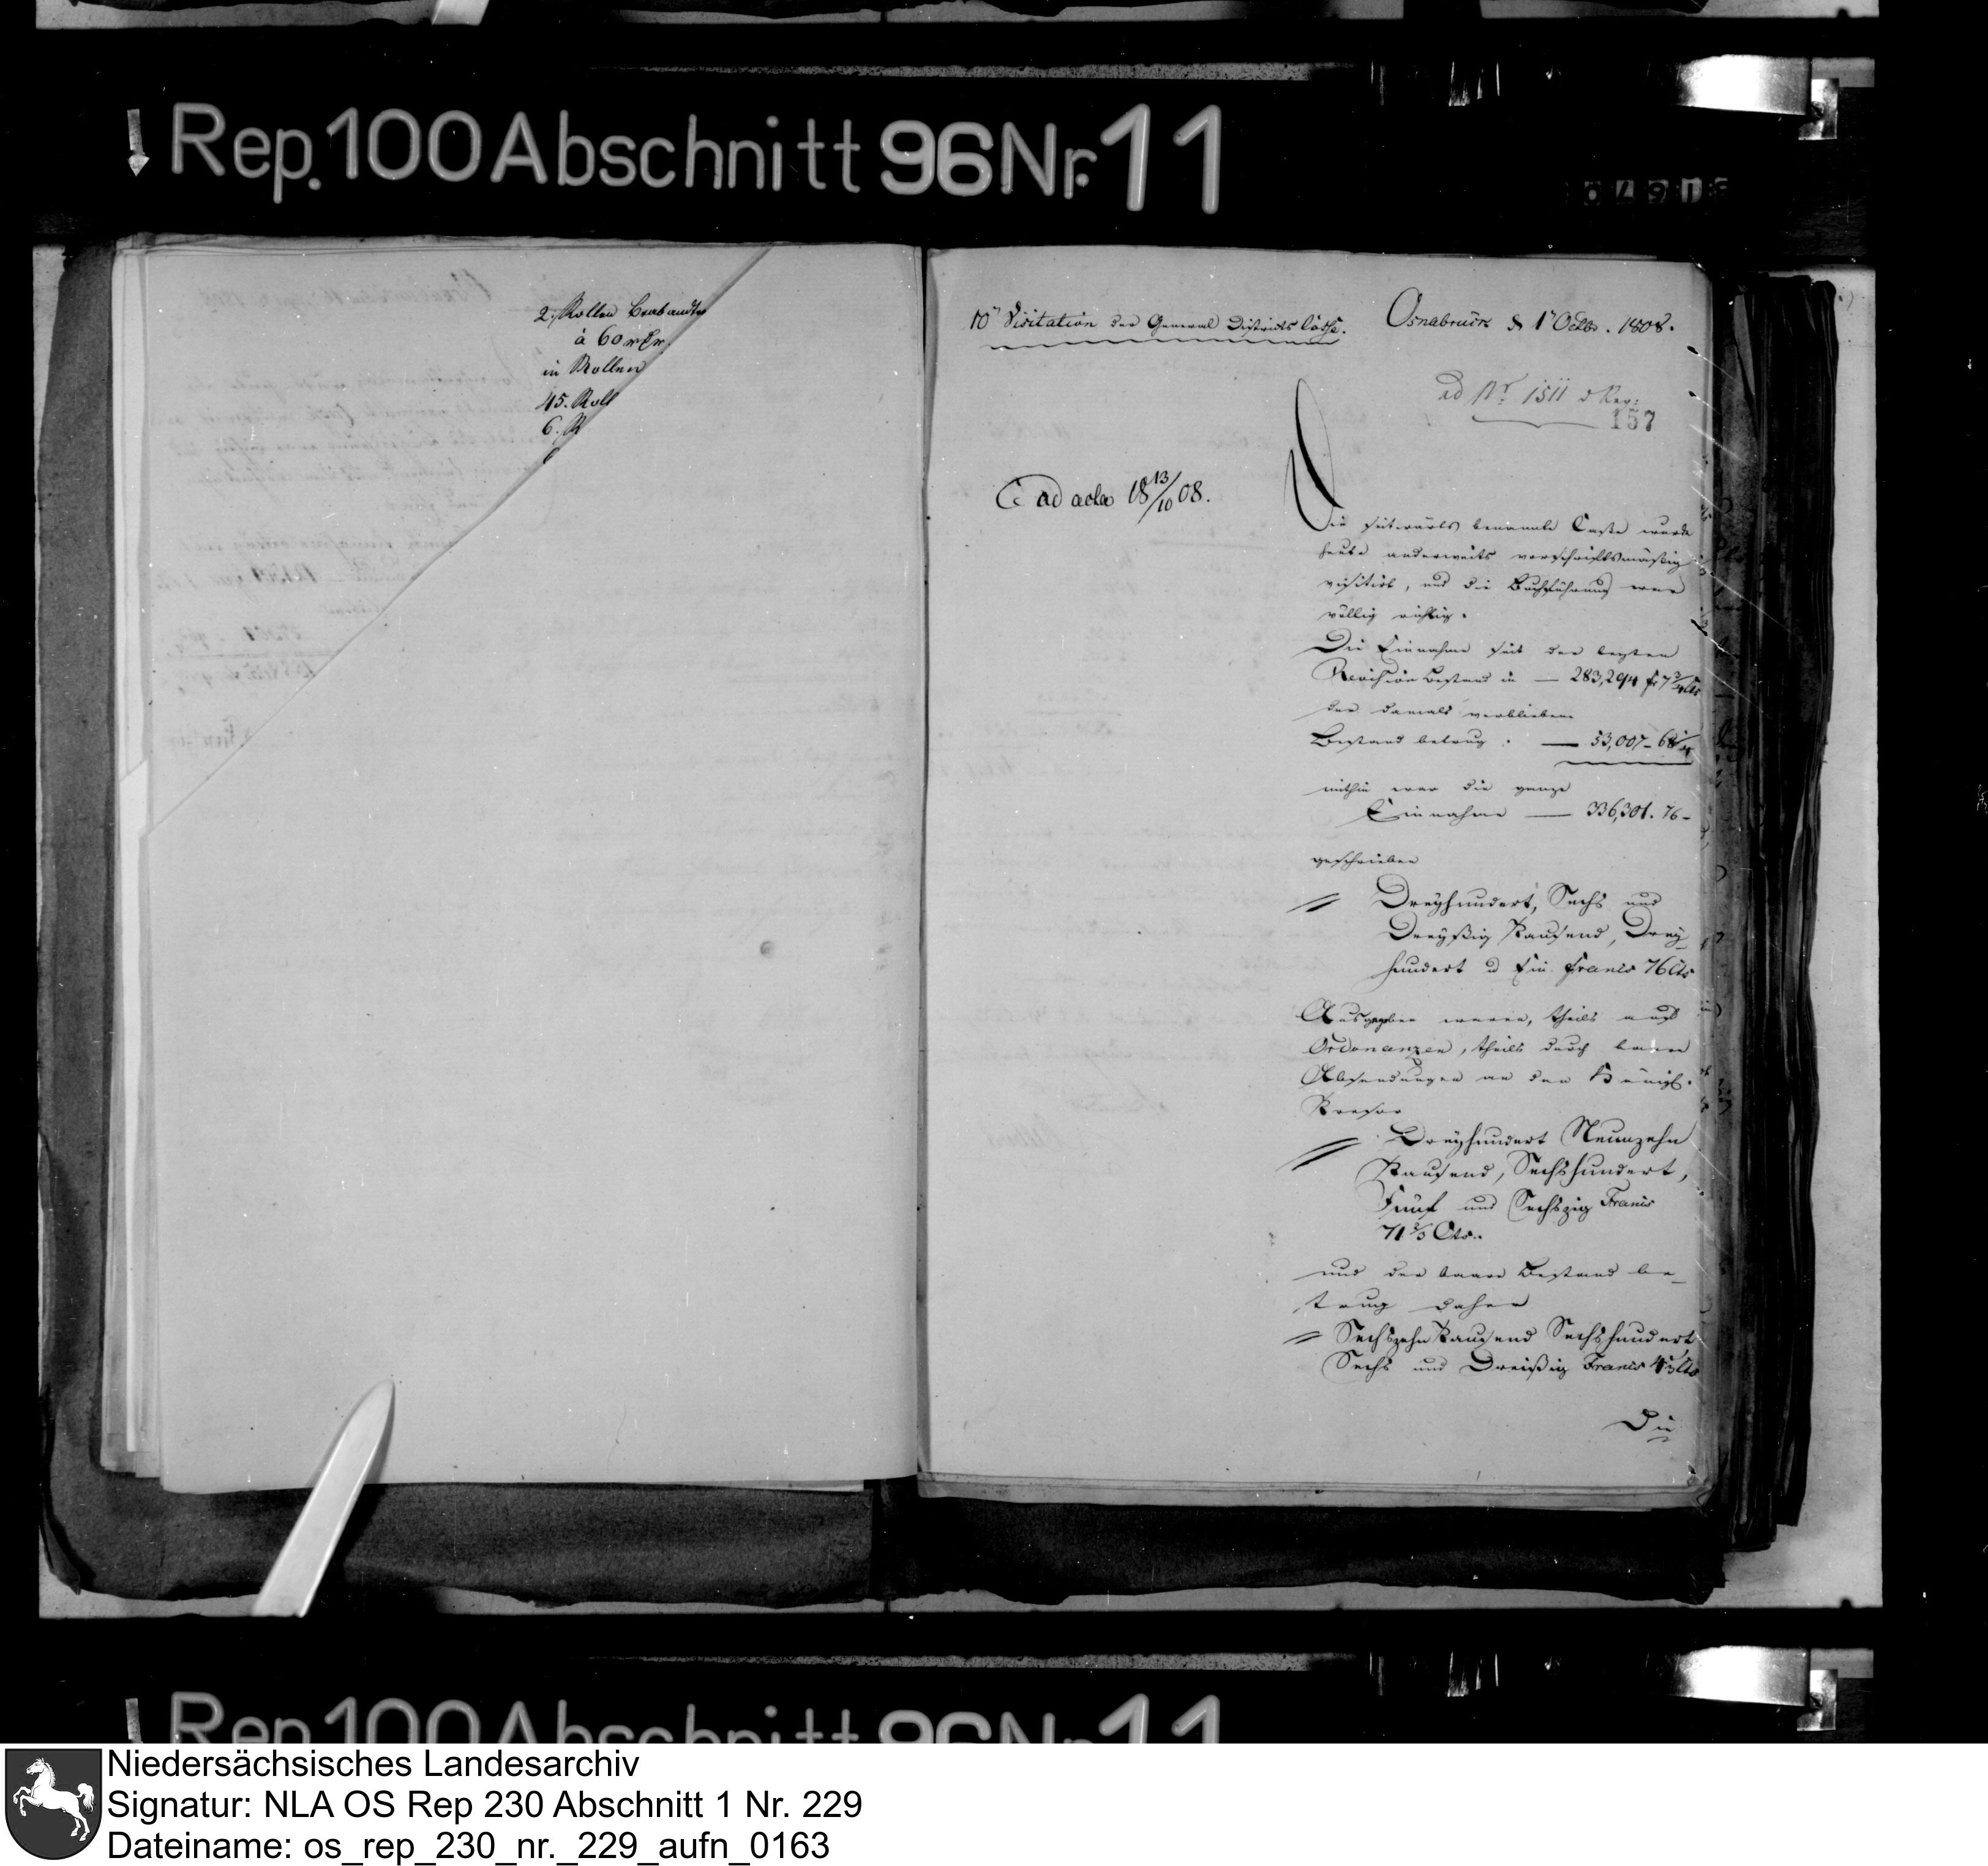 Rep. 100 Abschnitt 96 Nr. 11
2. Rollen Brabandter
à 60
in Rollen
45. Roll
6. R
10te Visitation der General Districts Casse.
Osnabrück d 1n Octbr. 1808.
ad Nr. 1511 d Reg:
157
ad acta 18 13/10 08.
Die seitwärts benannte Casse wurde
heute anderweits vorschriftsmäßig
visitirt, und die Buchführung war
völlig richtig.
Die Einnahme seit der letzten
Revision bestand in — 283,294 fr 7 3/4 Cts
der damals verbliebene
Bestand betrug. — 53,007 - 68 1/4
mithin war die ganze
Einnahme — 336,301. 76 -
geschrieben
Dreyhundert, Sechs und
Dreyßig Tausend, Drey
hundert u Ein Francs 76 Cts
Ausgegeben waren, theils auf
Ordonanzen, theils durch baare
Absendungen an den Königl.
Tresor
Dreyhundert Neunzehn
Tausend, Sechshundert,
Fünf und Sechszig Francs
71 2/3 Cts..
und der baare Bestand be-
trug daher
Sechszehn Tausend Sechshundert,
Sechs und Dreißig Francs 4 1/3 Cts
Die
Rep. 100 Abschnitt 96 Nr. 11
Niedersächsisches Landesarchiv
Signatur: NLA OS Rep 230 Abschnitt 1 Nr. 229
Dateiname: os_rep_230_nr._229_aufn_0163